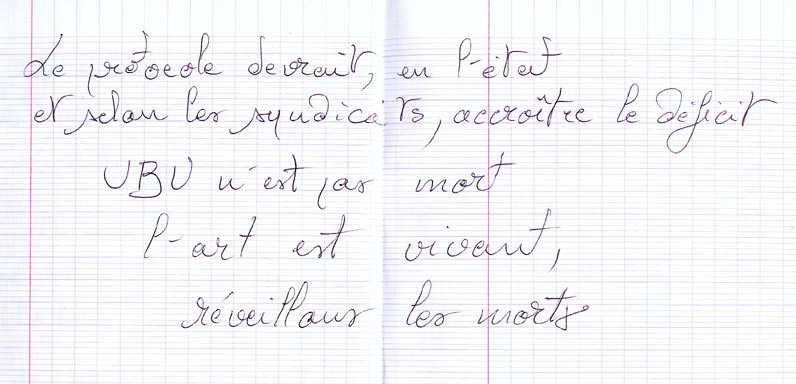 Le protocole devrait, en l-état
et selon les syndicats, accroître le déficit
UBU n'est pas mort
l-art est vivant,
réveillons les morts